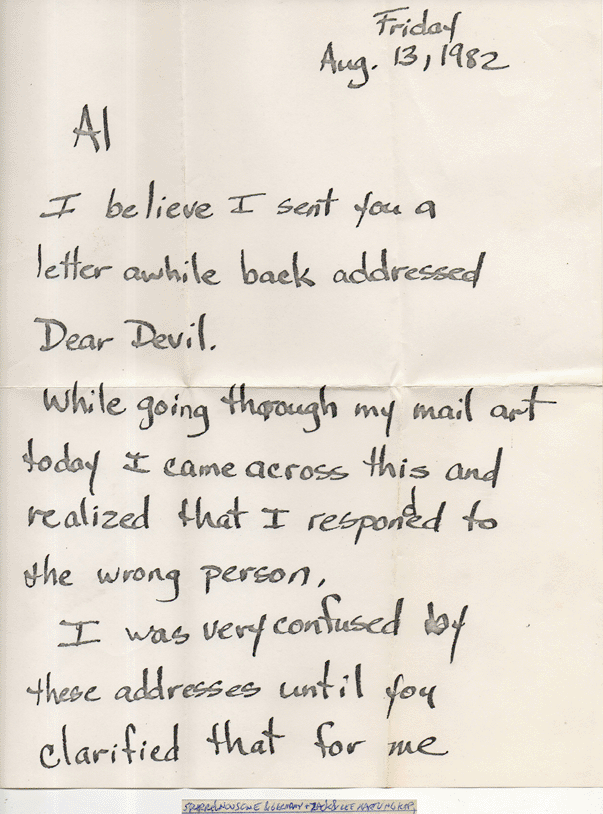 Friday
Aug. 13, 1982
Al
I believe I sent you a
letter awhile back addressed
Dear Devil.
While going through my mail art
today I came across this and
realized that I responded to
the wrong person.
I was very confused by
these addresses until you
clarified that for me